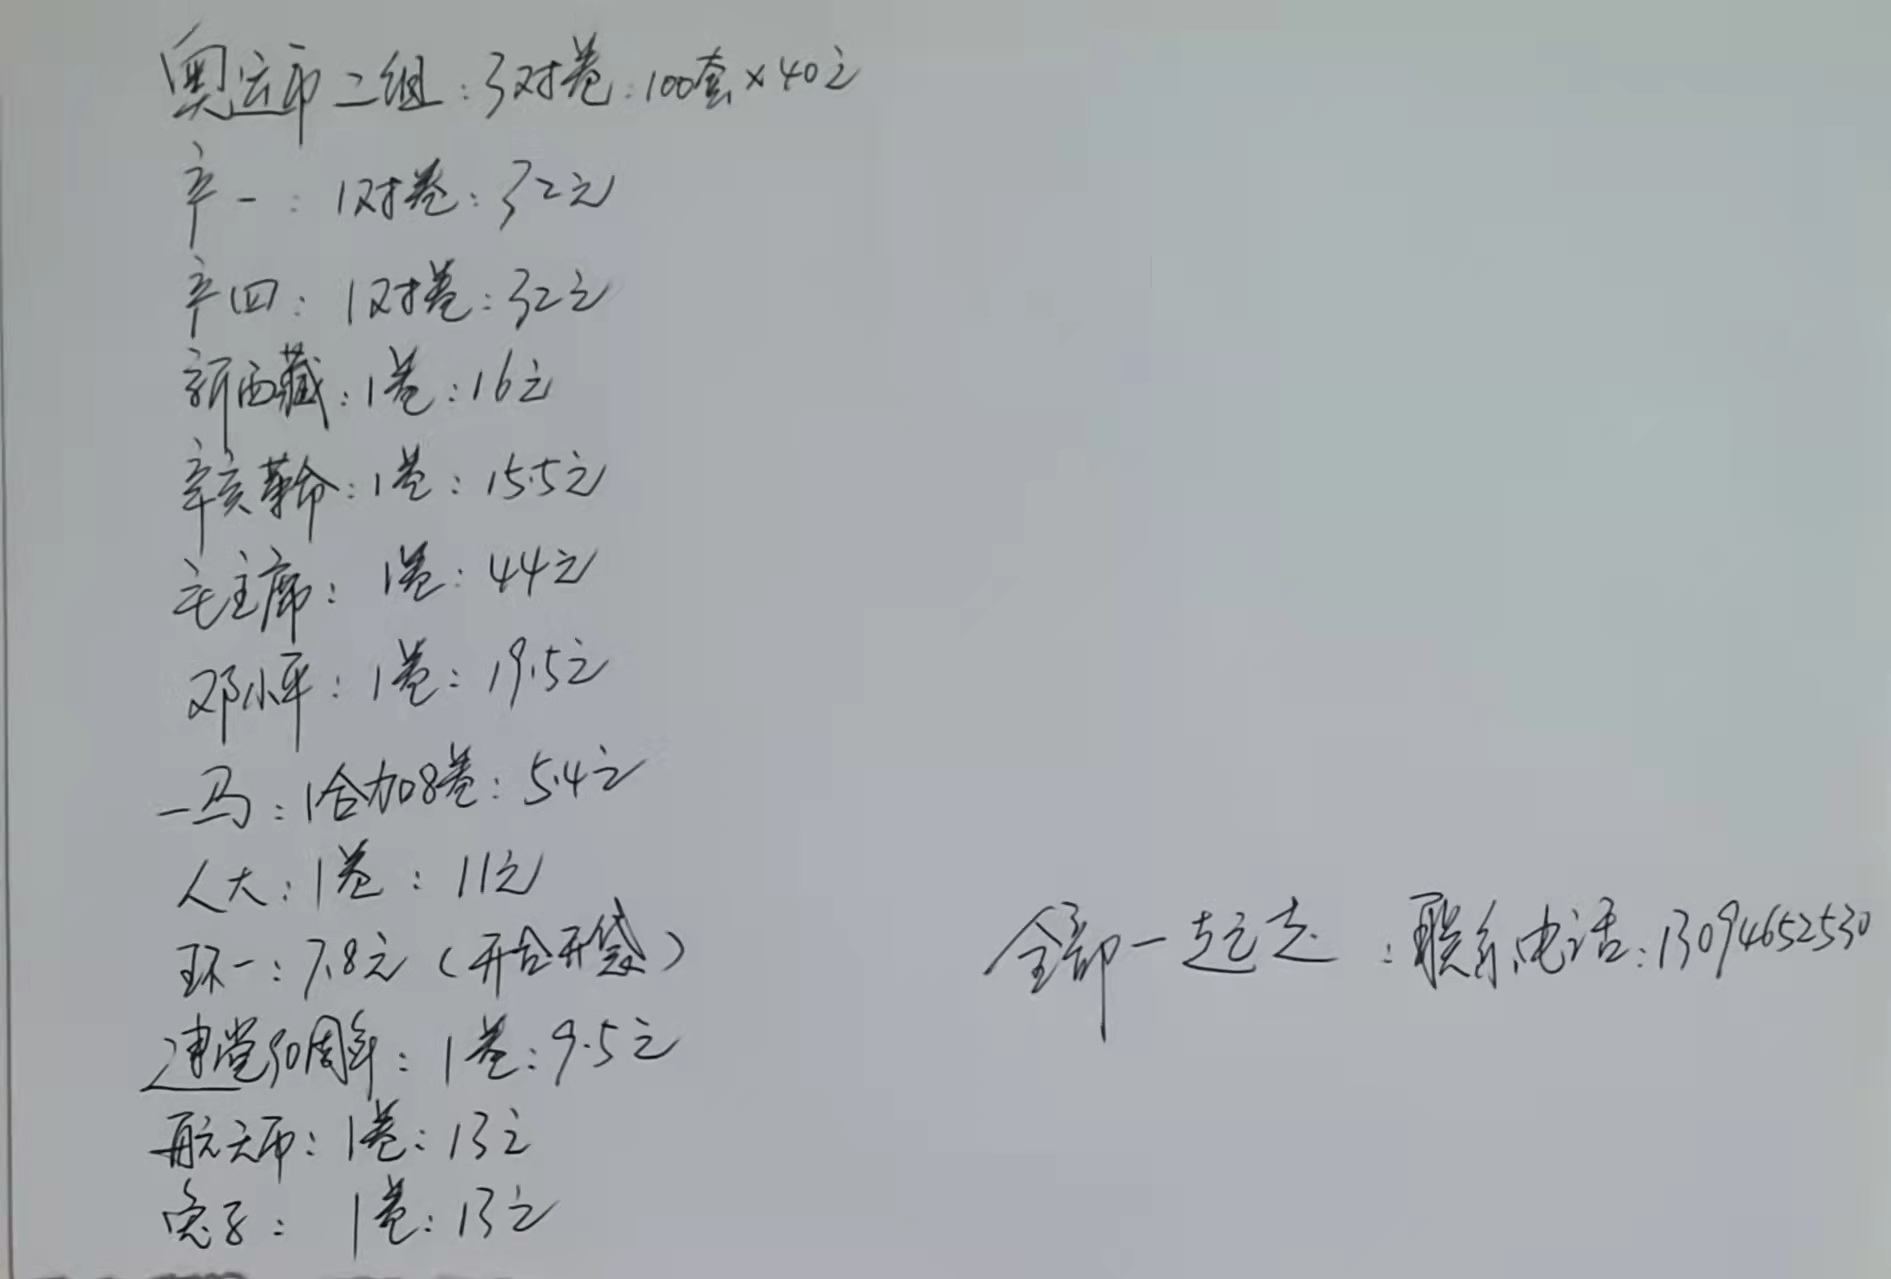 奥运币二组：3对卷：100套×40元
辛一：1对卷：32元
辛四：1对卷：32元
新西藏：1卷：16元
辛亥革命：1卷：15.5元
毛主席：1卷：44元
邓小平：1卷：19.5元
一马：1合加8卷：5.4元
人大：1卷：11元
环一：7.8元（开合开袋）
全部一起走：联系电话：13094652530
建党90周年：1卷：9.5元
航天币：1卷：13元
兔子：1卷：13元